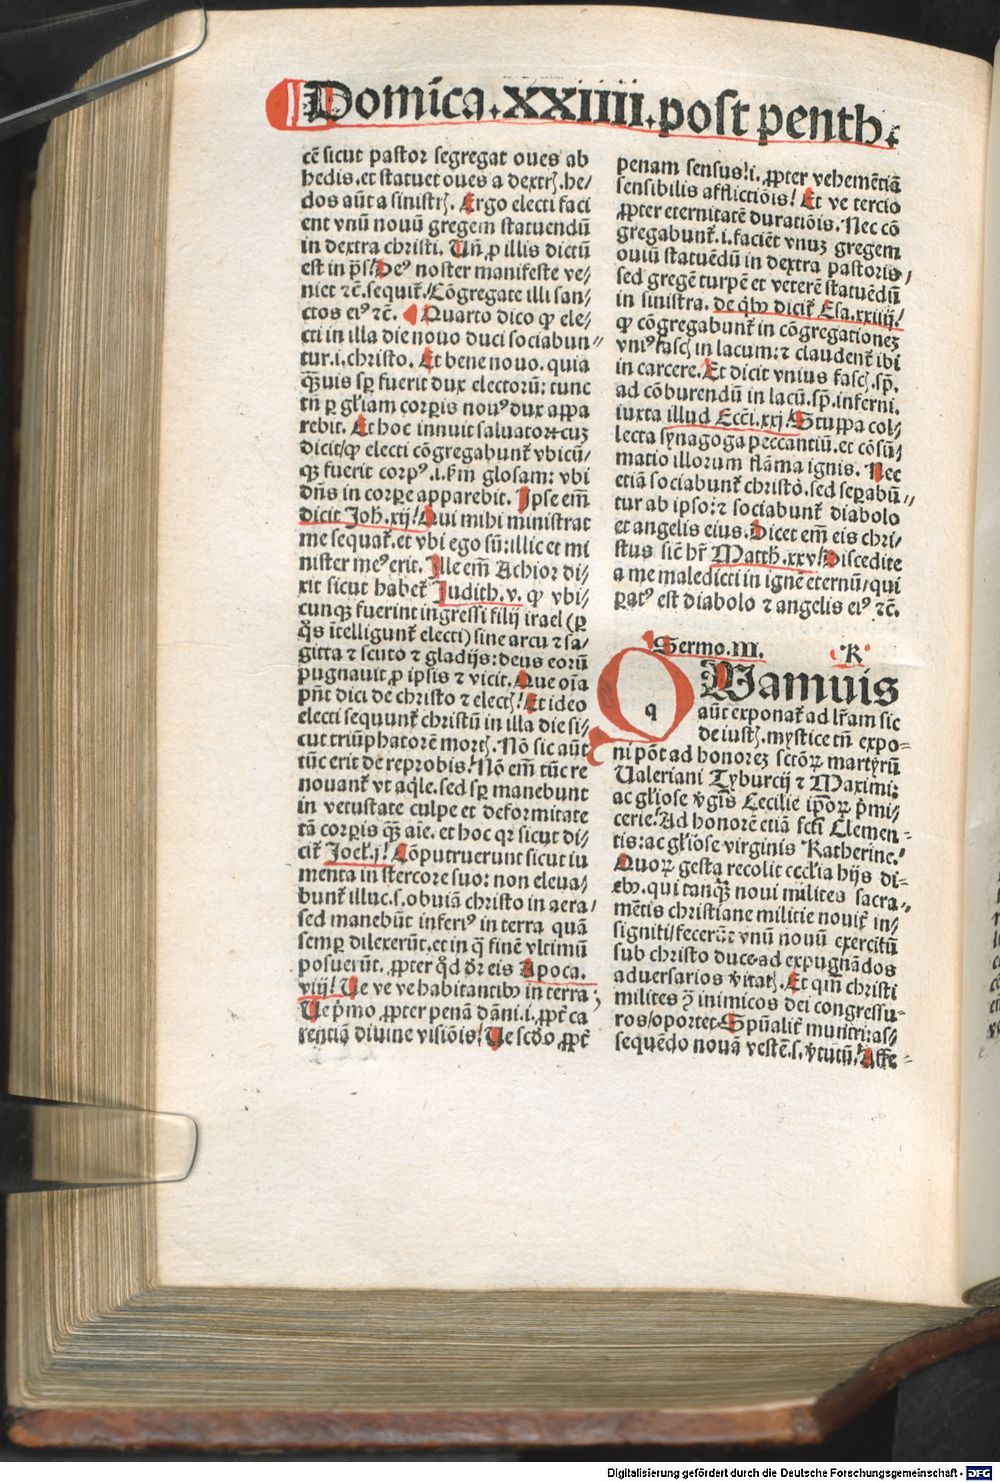 Domīca.xxiiii.post penth.
cē sicut pastor segregat oues ab
hedis.et statuet oues a dextrꝭ.he/
dos aūt a sinistrꝭ. Ergo electi faci
ent vnū nouū gregem statuendū
in dextra christi. Un̄ ꝓ illis dictū
est in p̄s/ Deꝰ noster manifeste ve/
niet ⁊c̄.sequit᷑./Cōgregate illi san/
ctos eiꝰ ⁊c̄. Quarto dico ꝙ ele/
cti in illa die nouo duci sociabun//
tur.i.christo. Et bene nouo. quia
qꝫuis sꝑ fuerit dux electorū: tunc
tn̄ ꝑ gl̓iam corꝑis nouꝰ dux appa
rebit. Et hoc innuit saluator cuꝫ
dicit/ꝙ electi cōgregabunt᷑ vbicū/
qꝫ fuerit corpꝰ.i.ẜm glosam: vbi
dn̄s in corꝑe apparebit. Ipse em̄
dicit Joh̄.xij! Qui mihi ministrat
me sequat᷑.et vbi ego sū:illic et mi
nister meꝰ erit. Ille em̄ Achior di/
xit sicut habet᷑ Judith.v. ꝙ vbi/
cunqꝫ fuerint ingressi filij irael (ꝑ
q̄s ītelligunt᷑ electi) sine arcu ⁊ sa/
gitta ⁊ scuto ⁊ gladijs: deus eorū
pugnauit ꝓ ipsis ⁊ vicit. Que oīa
pn̄t dici de christo ⁊ electꝭ! Et ideo
electi sequunt᷑ christū in illa die si/
cut triūphatorē mortꝭ. Nō sic aūt
tūc erit de reprobis. Nō em̄ tūc re
nouant᷑ vt aq̄le. sed sꝑ manebunt
in vetustate culpe et deformitate
tā corꝑis qꝫ aīe. et hoc qꝛ sicut di/
cit᷑ Joel̓.j! Cōputruerunt sicut iu
menta in stercore suo: non eleua/
bunt᷑ illuc.s.obuiā christo in aera/
sed manebūt inferiꝰ in terra quā
semꝑ dilexerūt.et in q̄ finē vltimū
posuerūt. ꝓpter qd̓ dr̄ eis Apoca.
viij! Ue ve ve habitantibꝰ in terra;
Ue p̄mo ꝓpter penā dāni.i.ꝓpt᷑ ca
rentiā diuine visiōis! Ue scd̓o ꝓpt᷑
penam sensus!i. ꝓpter vehemētiā
sensibilis afflictiōis! Et ve tercio
ꝓpter eternitatē duratiōis. Nec cō
gregabunt᷑.i.faciēt vnuꝫ gregem
ouiū statuēdū in dextra pastoris/
sed gregē turpē et veterē statuēdū
in sinistra. de qbꝰ dicit᷑ Esa.xxiiij!
ꝙ cōgregabunt᷑ in cōgregationeꝫ
vniꝰ fascꝭ in lacum: ⁊ claudent᷑ ibi
in carcere. Et dicit vnius fascꝭ.sp̄.
ad cōburendū in lacū.sp̄.inferni.
iuxta illud Ecci̓.xxj! Stuppa col/
lecta synagoga peccantiū.et cōsū/
matio illorum flāma ignis. Nec
etiā sociabunt᷑ christo. sed seꝑabū//
tur ab ipso: ⁊ sociabunt᷑ diabolo
et angelis eius. Dicet em̄ eis chri/
stus sic̄ hr̄ Matth.xxv! Discedite
a me maledicti in ignē eternū/qui
ꝑatꝰ est diabolo ⁊ angelis eiꝰ ⁊c̄.
Sermo.III. K
q
QUamuis
aūt exponat᷑ ad lr̄am sic
de iustꝭ.mystice tn̄ expo=
ni pōt ad honoreꝫ sctōꝝ martyrū
Ualeriani Tyburcij ⁊ Maximi:
ac gl̓iose v̓gīs Cecilie ip̄oꝝ p̄mi/
cerie! Ad honorē etiā scti̓ Clemen=
tis: ac gl̓iose virginis Katherine.
Quoꝝ gesta recolit ccc̄lia hijs di=
ebꝰ. qui tanqꝫ noui milites sacra=
mētis christiane militie nouit᷑ in/
signiti/fecerūt vnū nouū exercitū
sub christo duce ad expugnādos
aduersarios v̓itatꝭ. Et qm̄ christi
milites ꝯ̄ inimicos dei congressu=
ros/oportet Spūalit᷑ muniri: as/
sequēdo nouā vestē.s.v̓tutū! Affe=
Digitalisierung gefördert durch die Deutsche Forschungsgemeinschaft - DFG